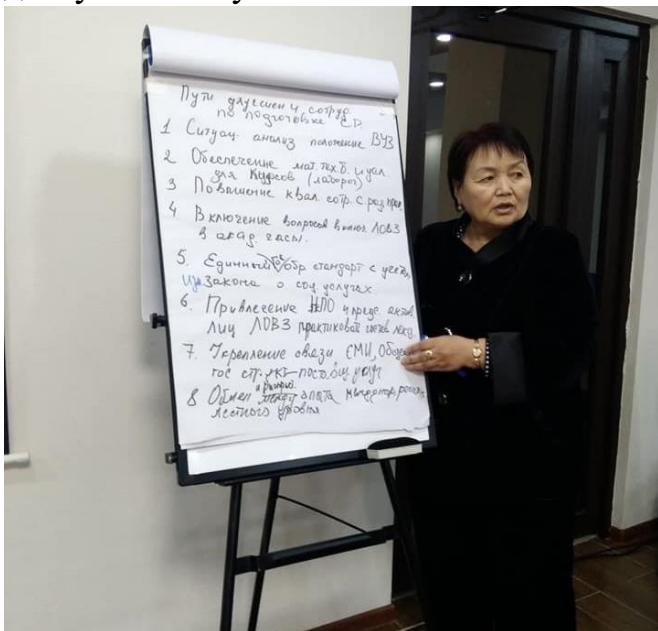 Пути улучшен и сотруд.
по подготовке СР.
1 Ситуац. анализ положение ВУЗ
2 Обеспечение мат. тех. б.
для Курсов (лаборот)
3 Повышение квал. сотр. с
4 Включение вопросов ЛОВЗ
в акад. часы.
5. Единный обр стандарт с учетом
Закона о соц услугах
6. Привлечение НПО и предс. актив.
лиц ЛОВЗ практиковать
7. Укрепление связи СМИ,
гос стр.
8 Обмен опыта
местного уровня